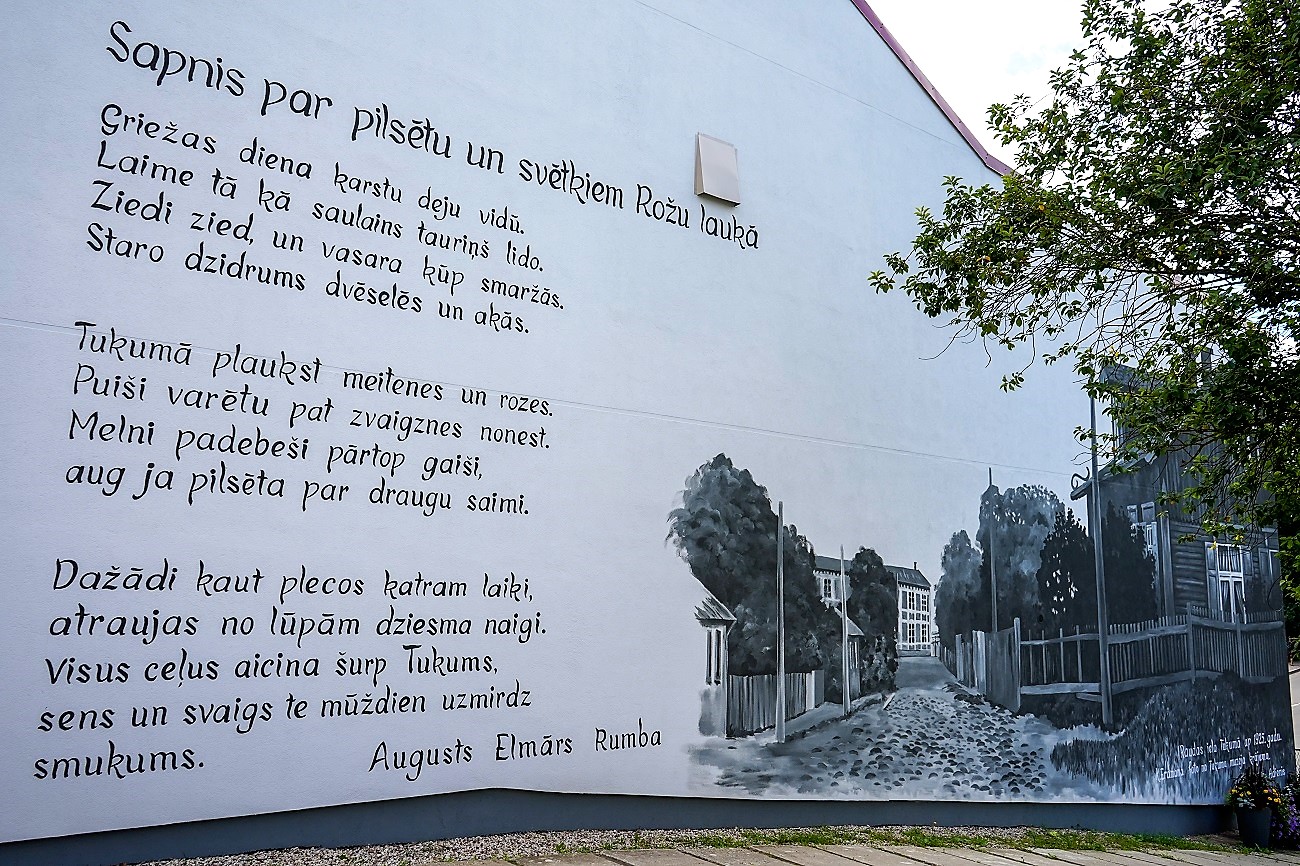 Sapnis par pilsētu un svētkiem Rožu laukā
Griežas diena karstu deju vidū.
Laime tā kā saulains tauriņš lido.
Ziedi zied, un vasara kūp smaržās.
Staro dzidrums dvēselēs un akās.
Tukumā plaukst meitenes un rozes.
Puiši varētu pat zvaigznes nonest.
Melni padebeši pārtop gaiši,
aug ja pilsēta par draugu saimi.
Dažādi kaut plecos katram laiki,
atraujas no lūpām dziesma naigi.
Visus ceļus aicina šurp Tukums,
sens un svaigs te mūždien uzmirdz
smukums.
Augusts Elmārs Rumba
Raudas iela Tukumā ap 1925. gadu.
no Tukuma muzeja krājuma.